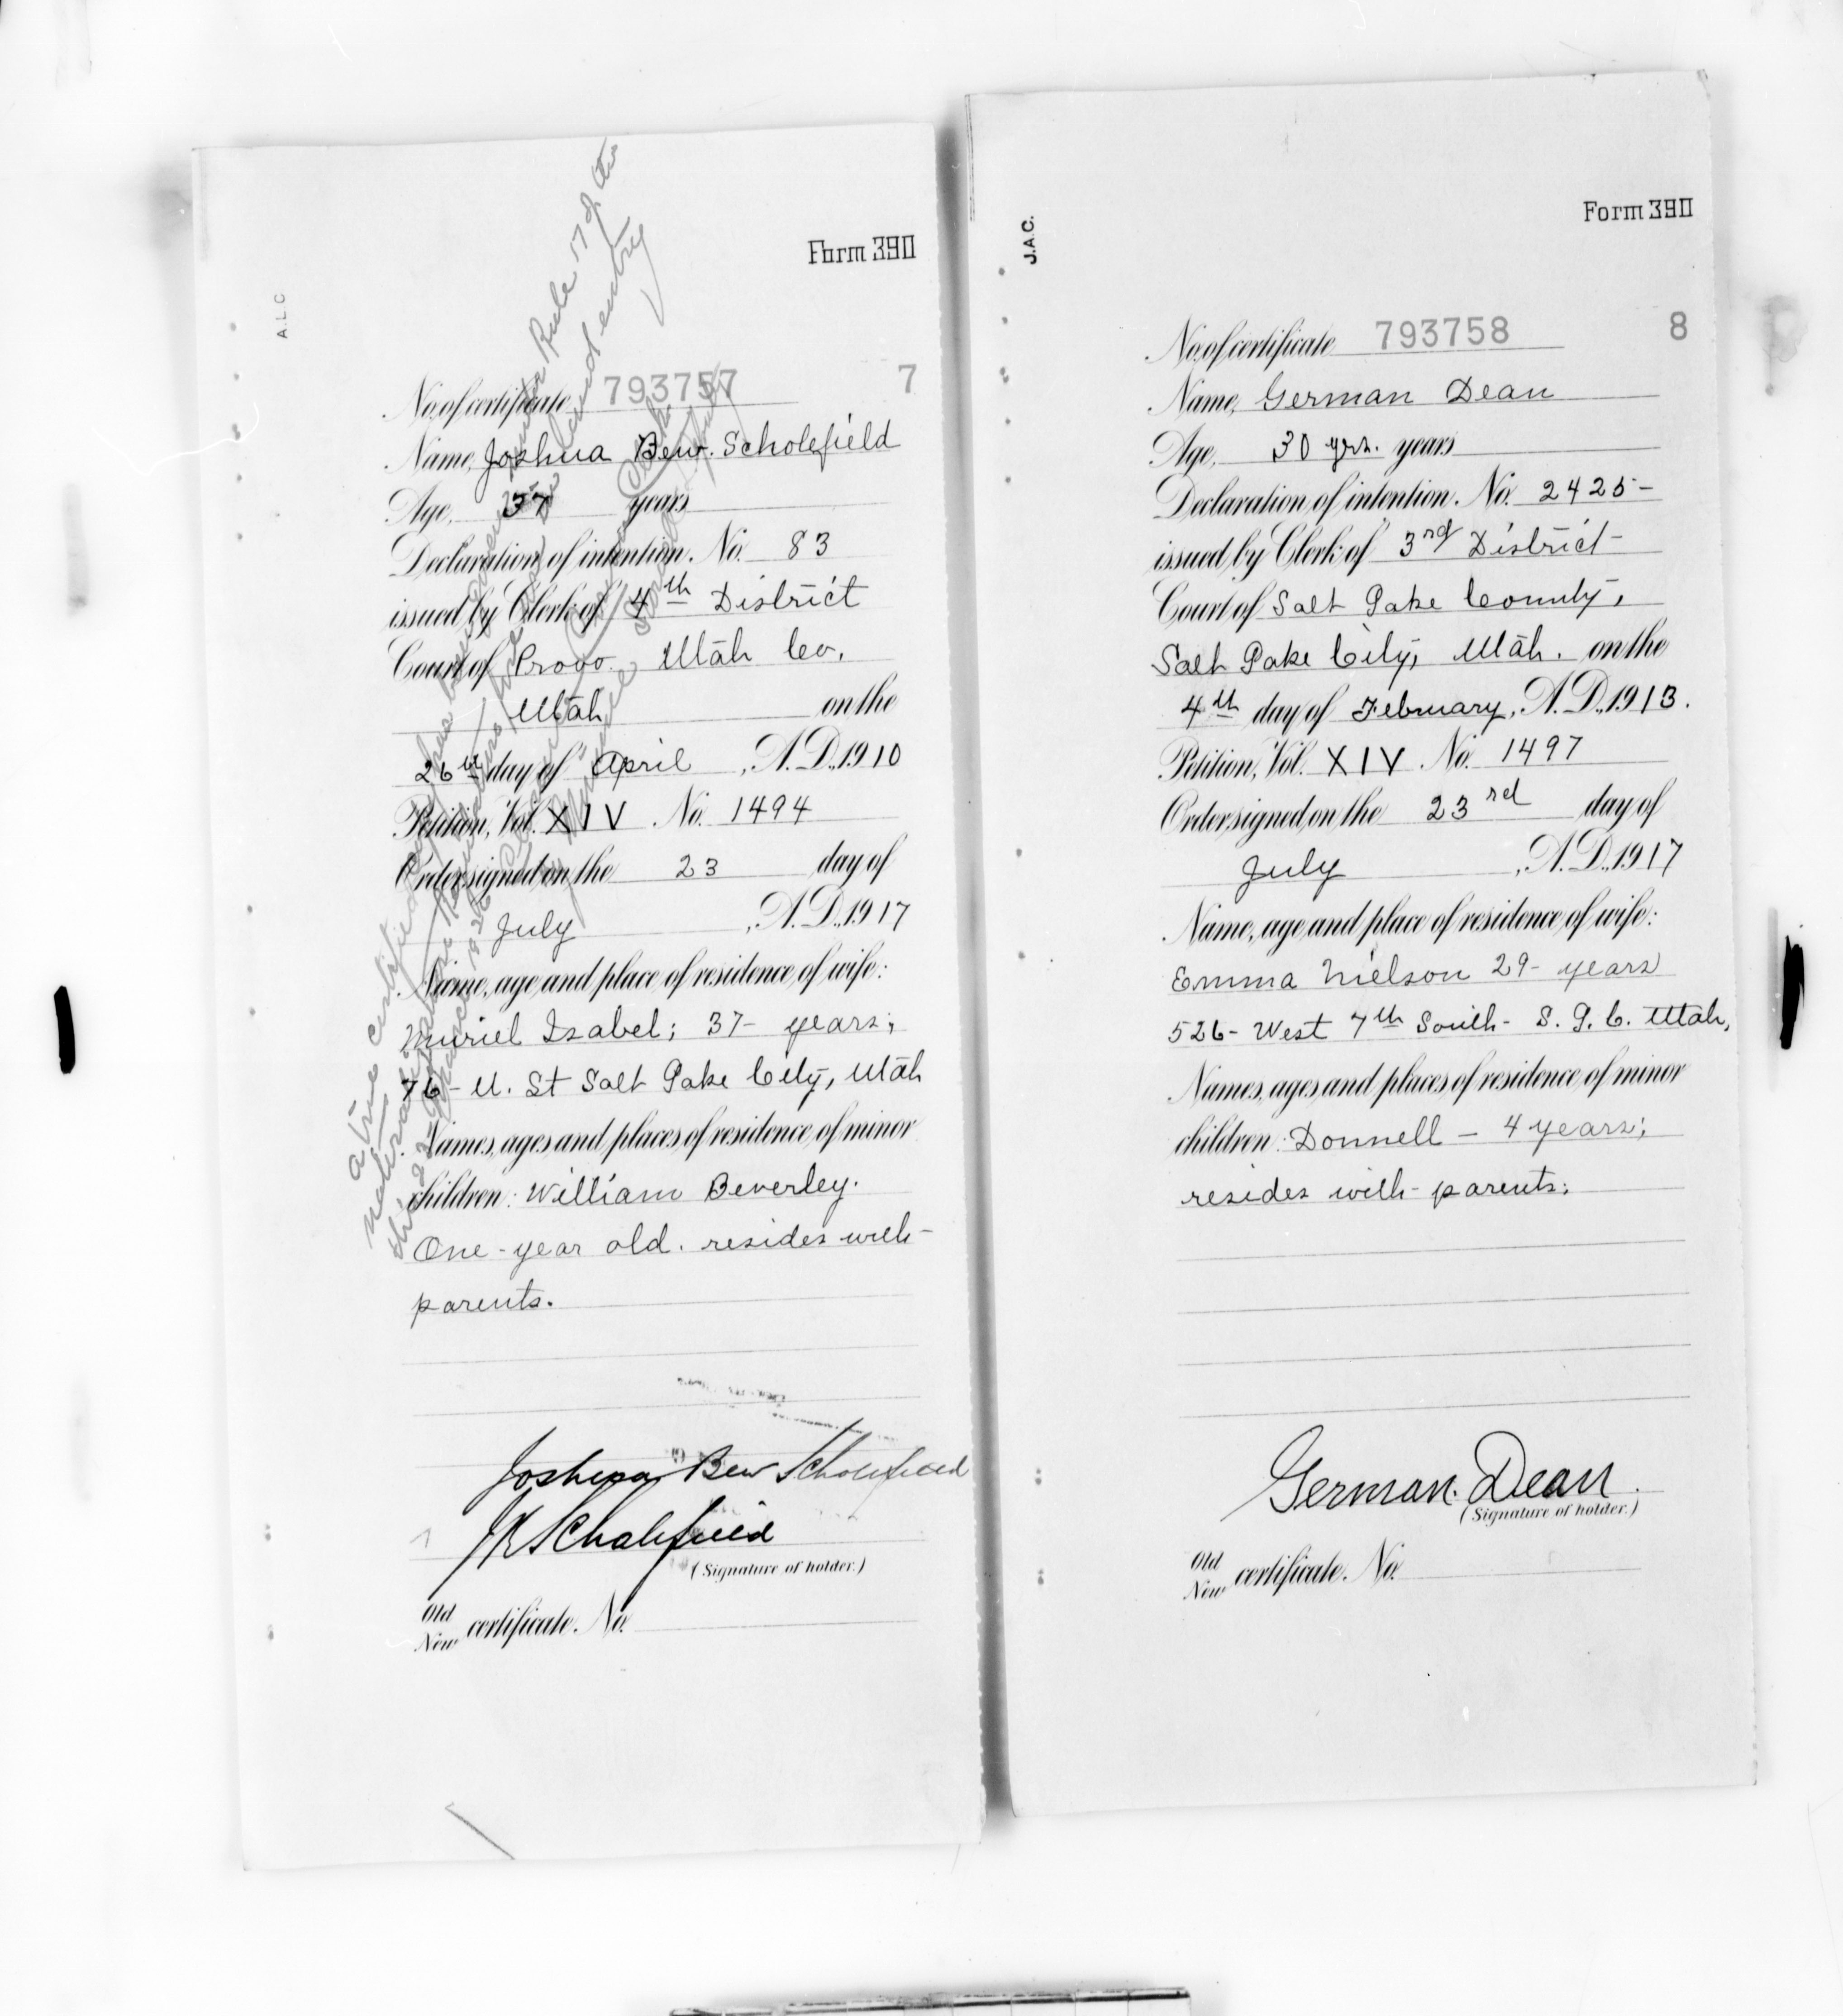 A.L.C
Form 390
No. of certificate 793757 7
Name, Joshua Bew. Scholefield
Age, 37 years
Declaration of intention. No. 83
issued by Clerk of 4th District
Court of Provo. Utah Co,
Utah on the
26th day of April, A.D. 1910
Petition, Vol. XIV. No. 1494
Order signed on the 23 day of
July, A.D. 1917
Name, age and place of residence of wife:
Muriel Isabel; 37- years;
76- U. St Salt Lake City, Utah
Names, ages and places of residence of minor
children: William Beverley.
One-year old. resides with-
parents.
Joshua Bew Scholefield
Scholefield
(Signature of holder.)
Old
New certificate. No.
a true certified
Rule 17 of the
land entry
J.A.C.
Form 390
No. of certificate 793758 8
Name, German Dean
Age, 30 yrs. years
Declaration of intention. No. 2425-
issued by Clerk of 3rd District-
Court of Salt Lake County,
Salt Lake City, Utah. on the
4th day of February, A.D. 1913.
Petition, Vol. XIV. No. 1497
Order signed on the 23rd day of
July, A.D. 1917
Name, age and place of residence of wife:
Emma Nielson 29- years
526- West 7th South- S. L. C. Utah,
Names, ages and places of residence of minor
children: Donnell - 4 years;
resides with- parents;
German. Dean.
(Signature of holder.)
Old
New certificate. No.